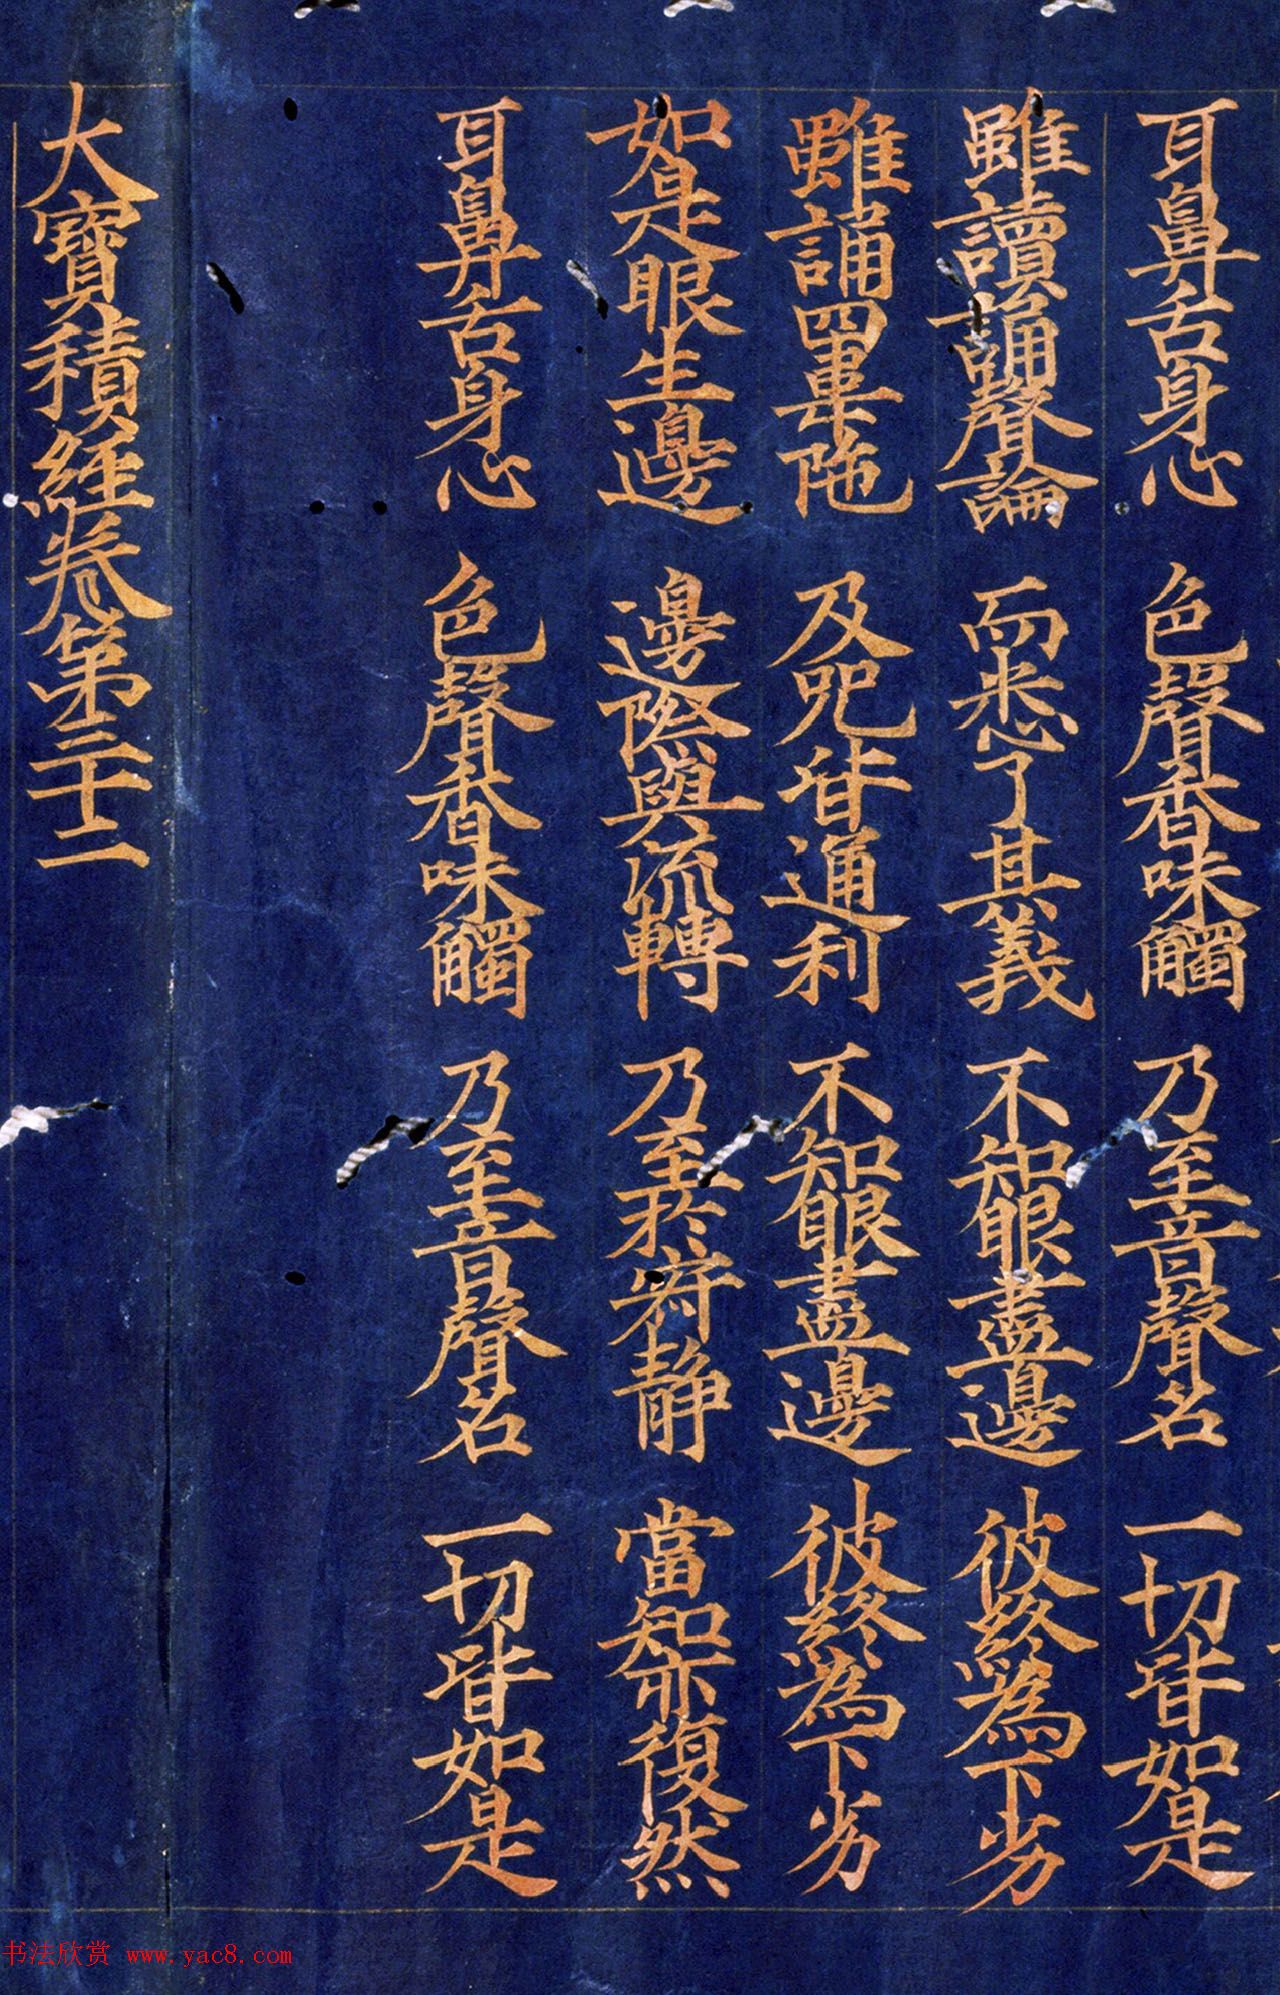 耳鼻舌身心 色聲香味觸 乃至音聲名 一切皆如是
雖讀誦聲論 而悉了其義 不知眼盡邊 彼終為下劣
雖誦四畢陁 及呪皆通利 不知眼盡邊 彼終為下劣
如是眼生邊 邊際與流轉 乃至於寂静 當知亦復然
耳鼻舌身心 色聲香味觸 乃至音聲名 一切皆如是
大寶積經卷第三十二
书法欣赏 www.yac8.com